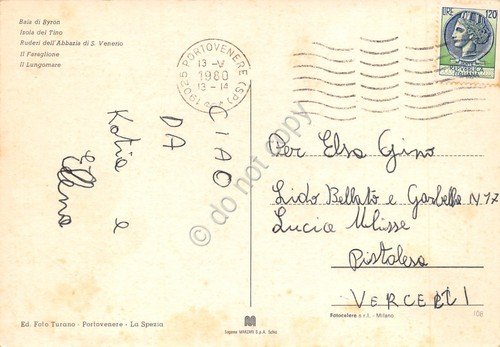 Baia di Byron
Isola del Tino
Ruderi dell'Abbazia di S. Venerio
Il Fareglione
Il Lungomare
19025 PORTOVENERE (SP)
13-V
1980
13-14
LIRE 120
CIAO
DA
Katia e
Elena
Per Elsa Gino
Lido Bellato e Garbella N 17
Lucia Ulisse
Pistolesa
VERCELLI
do not copy
Ed. Foto Turano - Portovenere - La Spezia
Fotocelere s.r.l. - Milano
108